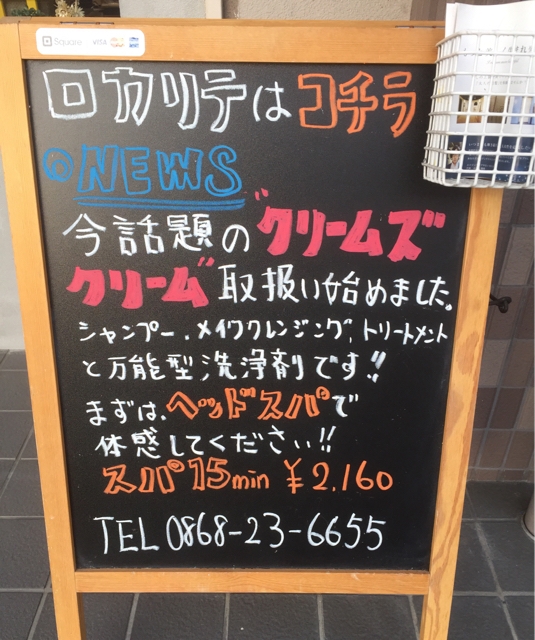 Square VISA
ロカリテは コチラ
NEWS
今話題の"クリームズ
クリーム"取扱い始めました。
シャンプー、メイククレンジング、トリートメント
と万能型洗浄剤です!!
まずは、ヘッドスパで
体感してください!!
スパ15min ¥2,160
TEL 0868-23-6655